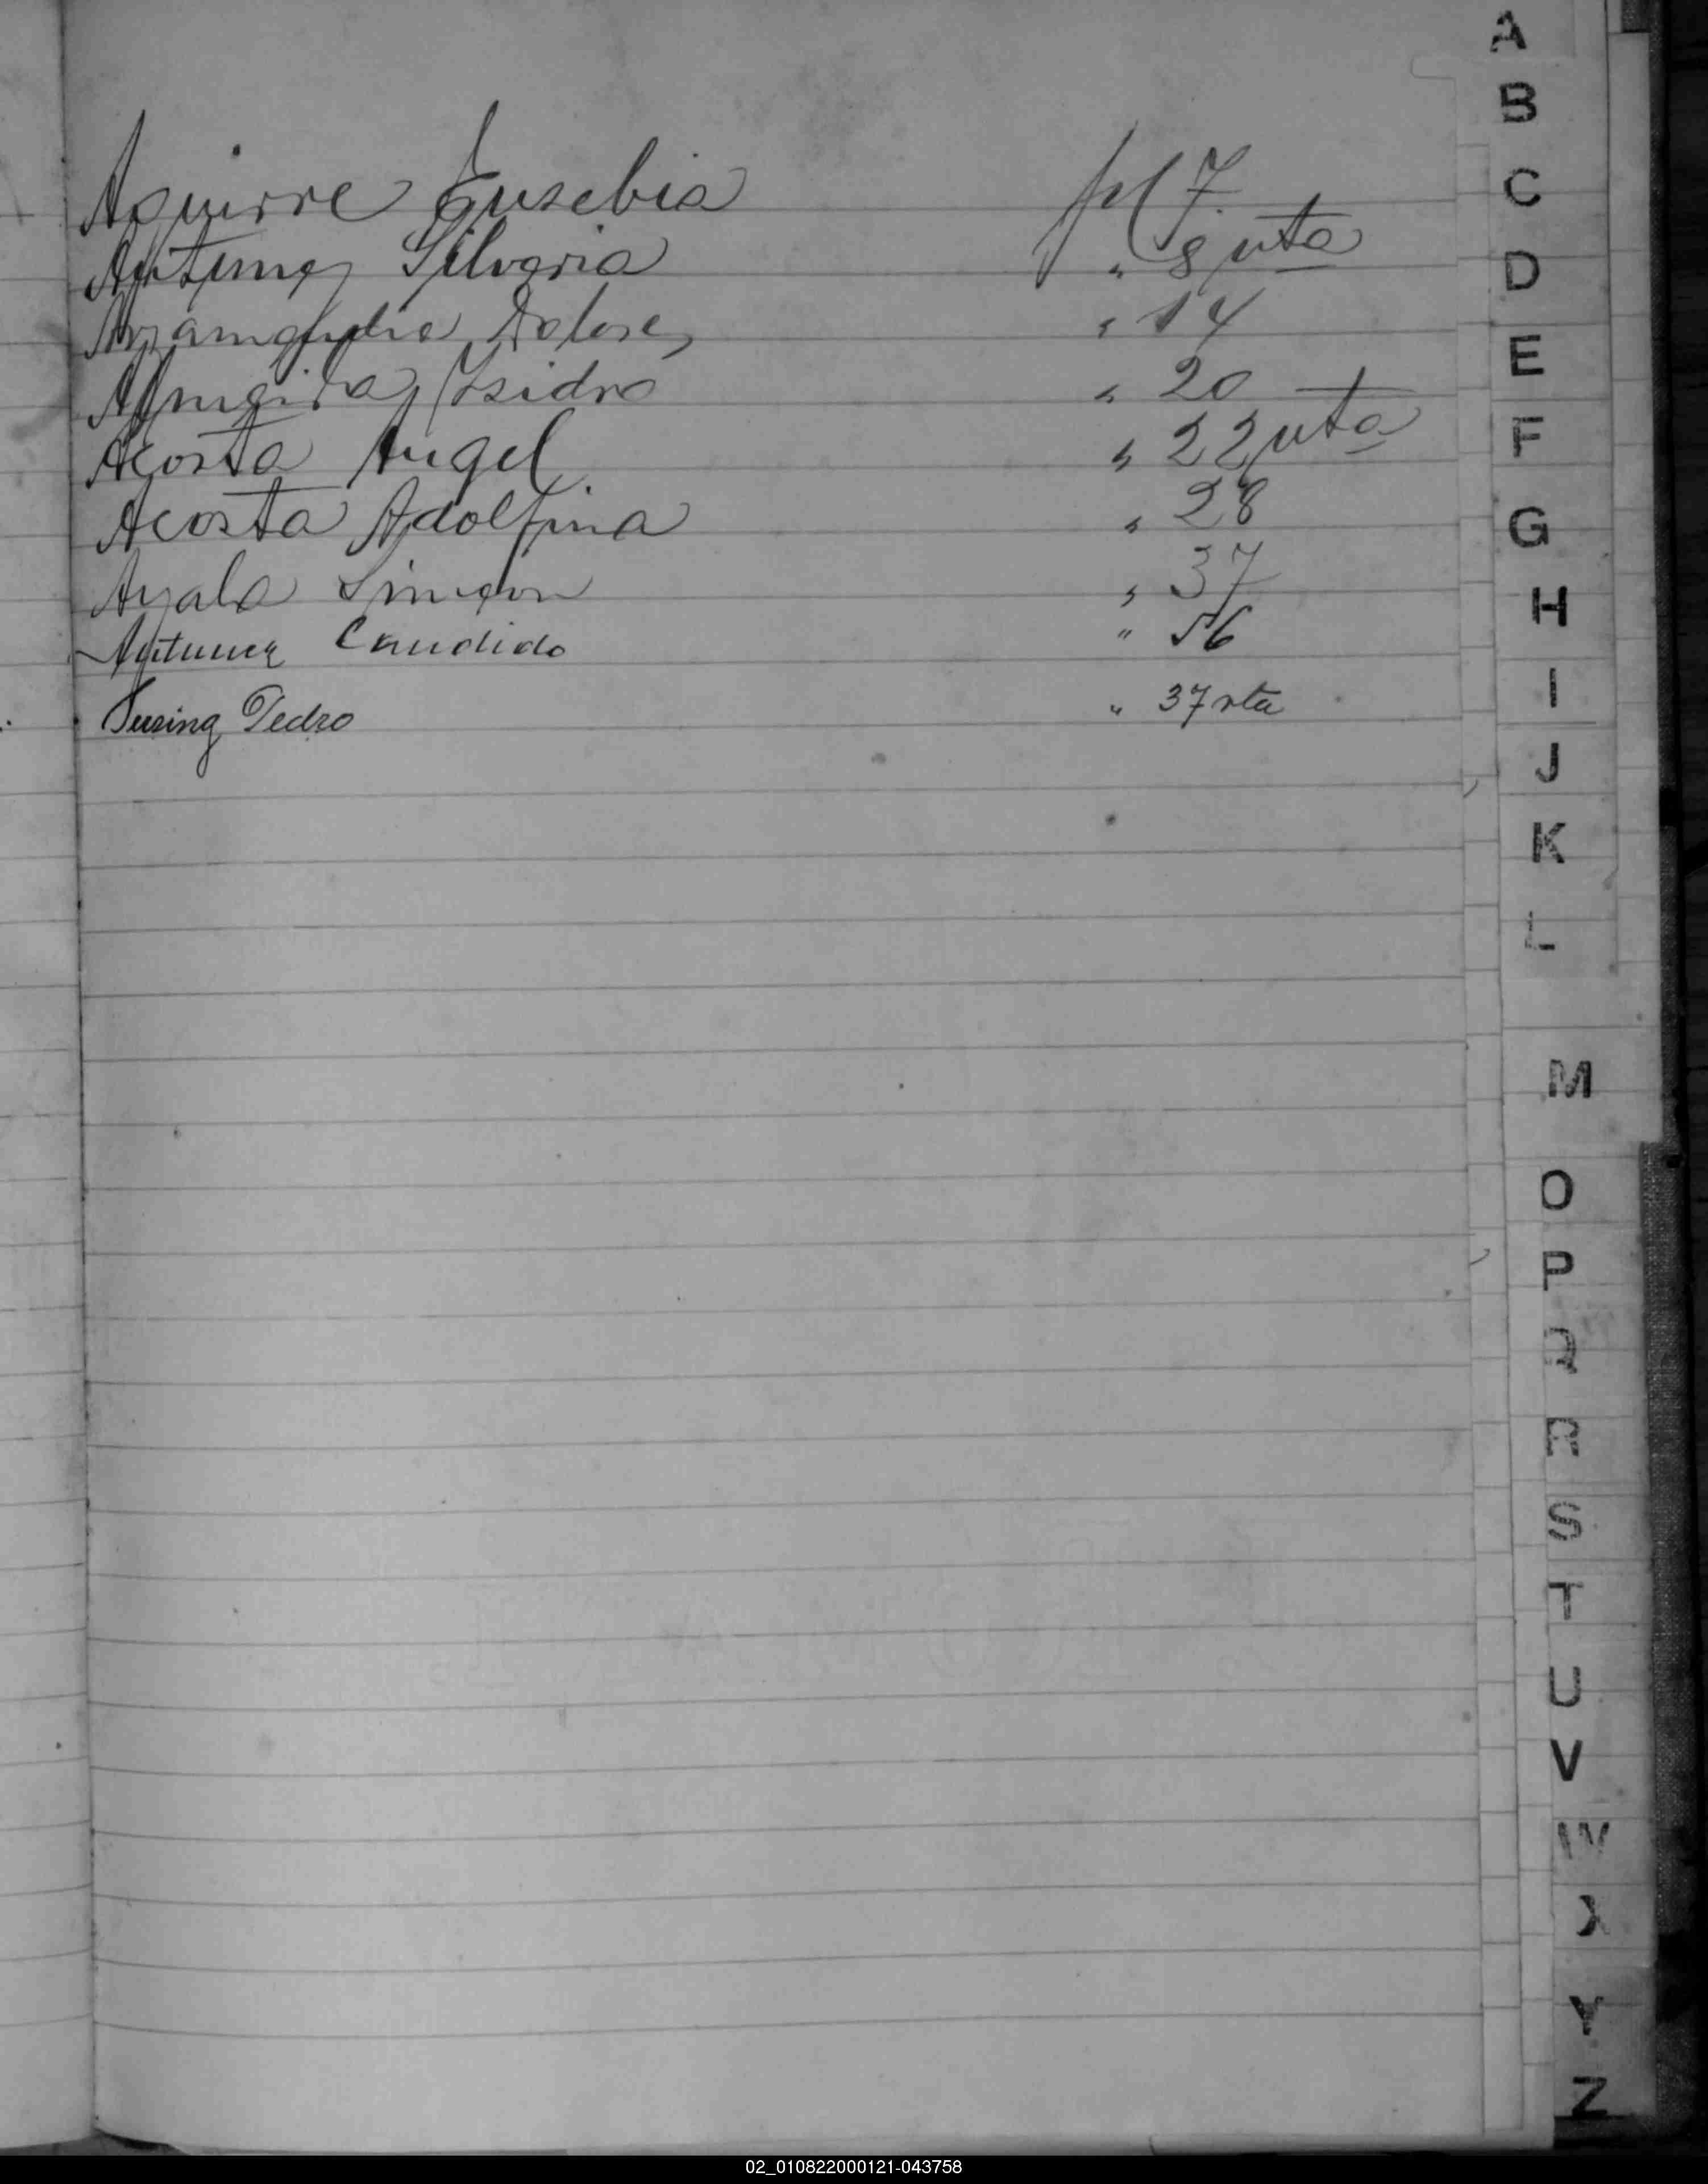 Aguirre Eusebia fol 7.
Antunez Silveria " 8 vta
Dolores " 14
Isidro " 20
Acosta Angel " 22 vta
Acosta Adolfina " 28
Ayala Simeon " 37
Antunez Candido " 56
Pedro " 37 vta
A
B
C
D
E
F
G
H
I
J
K
L
M
O
P
Q
R
S
T
U
V
W
X
Y
Z
02_010822000121-043758